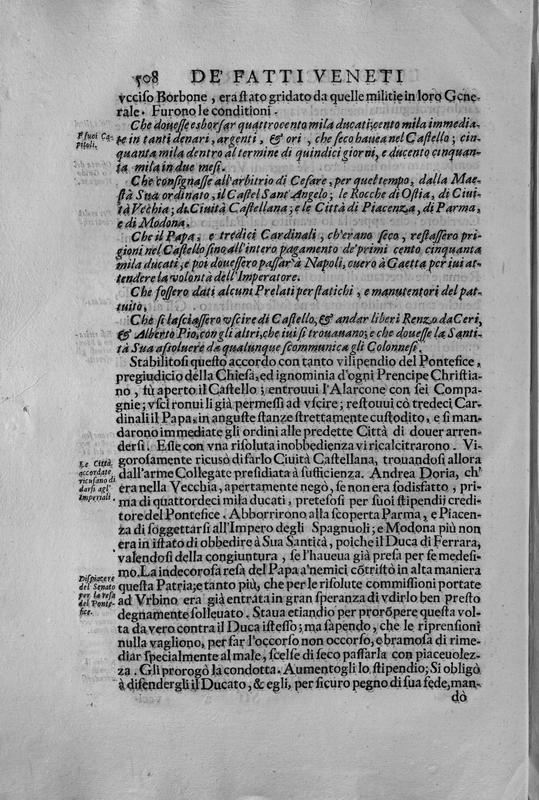 508 DE' FATTI VENETI
vcciso Borbone, era stato gridato da quelle militie in loro Gene-
rale. Furono le conditioni.
Che douesse esborsar quattrocento mila ducati; cento mila immedia-
P suoi Ca-
pitoli.
te in tanti denari, argenti, & ori, che seco hauea nel Castello; cin-
quanta mila dentro al termine di quindici giorni, e ducento cinquan-
ta mila in due mesi.
Che consignasse all'arbitrio di Cesare, per quel tempo, dalla Mae-
stà Sua ordinato, il Castel Sant'Angelo; le Rocche di Ostia, di Ciui-
tà Vecchia; di Ciuità Castellana; e le Città di Piacenza, di Parma,
e di Modona.
Che il Papa, e tredici Cardinali, ch'erano seco, restassero pri-
gioni nel Castello sino all'intero pagamento de' primi cento cinquanta
mila ducati, e poi douessero passar à Napoli, ouero à Gaetta per iui at-
tendere la volontà dell'Imperatore.
Che fossero dati alcuni Prelati per statichi, e manutentori del pat-
tuito.
Che si lasciassero vscire di Castello, & andar liberi Renzo da Ceri,
& Alberto Pio, con gli altri, che iui si trouanano; e che douesse la Santi-
tà Sua assoluere da qualunque scommunica gli Colonnesi.
Stabilitosi questo accordo con tanto vilipendio del Pontefice,
pregiudicio della Chiesa, ed ignominia d'ogni Prencipe Christia-
no, fù aperto il Castello; entrouui l'Alarcone con sei Compa-
gnie; vscironui li già permessi ad vscire; restouui cō tredeci Car-
dinali il Papa, in anguste stanze strettamente custodito, e si man-
darono immediate gli ordini alle predette Città di douer arren-
dersi. Esse con vna risoluta inobbedienza vi ricalcitrarono. Vi-
Le Città
accordate
ricusano di
darsi agl'
Imperiali.
gorosamente ricusò di farlo Ciuità Castellana, trouandosi allora
dall'arme Collegate presidiata à sufficienza. Andrea Doria, ch'
era nella Vecchia, apertamente negò, se non era sodisfatto, pri-
ma di quattordeci mila ducati, pretesosi per suoi stipendij credi-
tore del Pontefice. Abborrirono alla scoperta Parma, e Piacen-
za di soggettarsi all'Impero degli Spagnuoli; e Modona più non
era in istato di obbedire à Sua Santità, poiche il Duca di Ferrara,
valendosi della congiuntura, se l'haueua già presa per se medesi-
mo. La indecorosa resa del Papa a' nemici cōtristò in alta maniera
Dispiacere
del Senato
per la resa
del Ponte-
fice.
questa Patria; e tanto più, che per le risolute commissioni portate
ad Vrbino era già entrata in gran speranza di vdirlo ben presto
degnamente solleuato. Staua etiandio per prorōpere questa vol-
ta da vero contra il Duca istesso; ma sapendo, che le riprensioni
nulla vagliono, per far l'occorso non occorso, e bramosa di rime-
diar specialmente al male, scelse di seco passarla con piaceuolez-
za. Gli prorogò la condotta. Aumentogli lo stipendio; Si obligò
à difendergli il Ducato, & egli, per sicuro pegno di sua fede, man-
dò